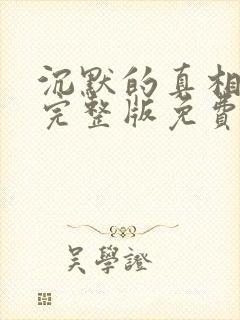 沉默的真相
完整版免費
吳學證